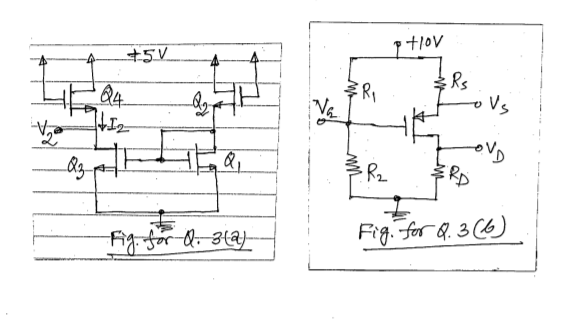 +5V
Q4
Q2
V2
I2
Q3
Q1
Fig. for Q. 3(a)
+10V
R1
RS
VG
VS
VD
R2
RD
Fig. for Q. 3(b)